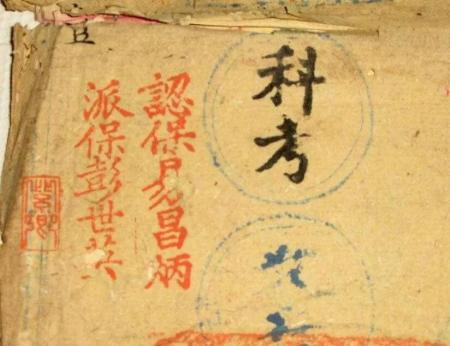 科考
認保昌炳
派保彭世英